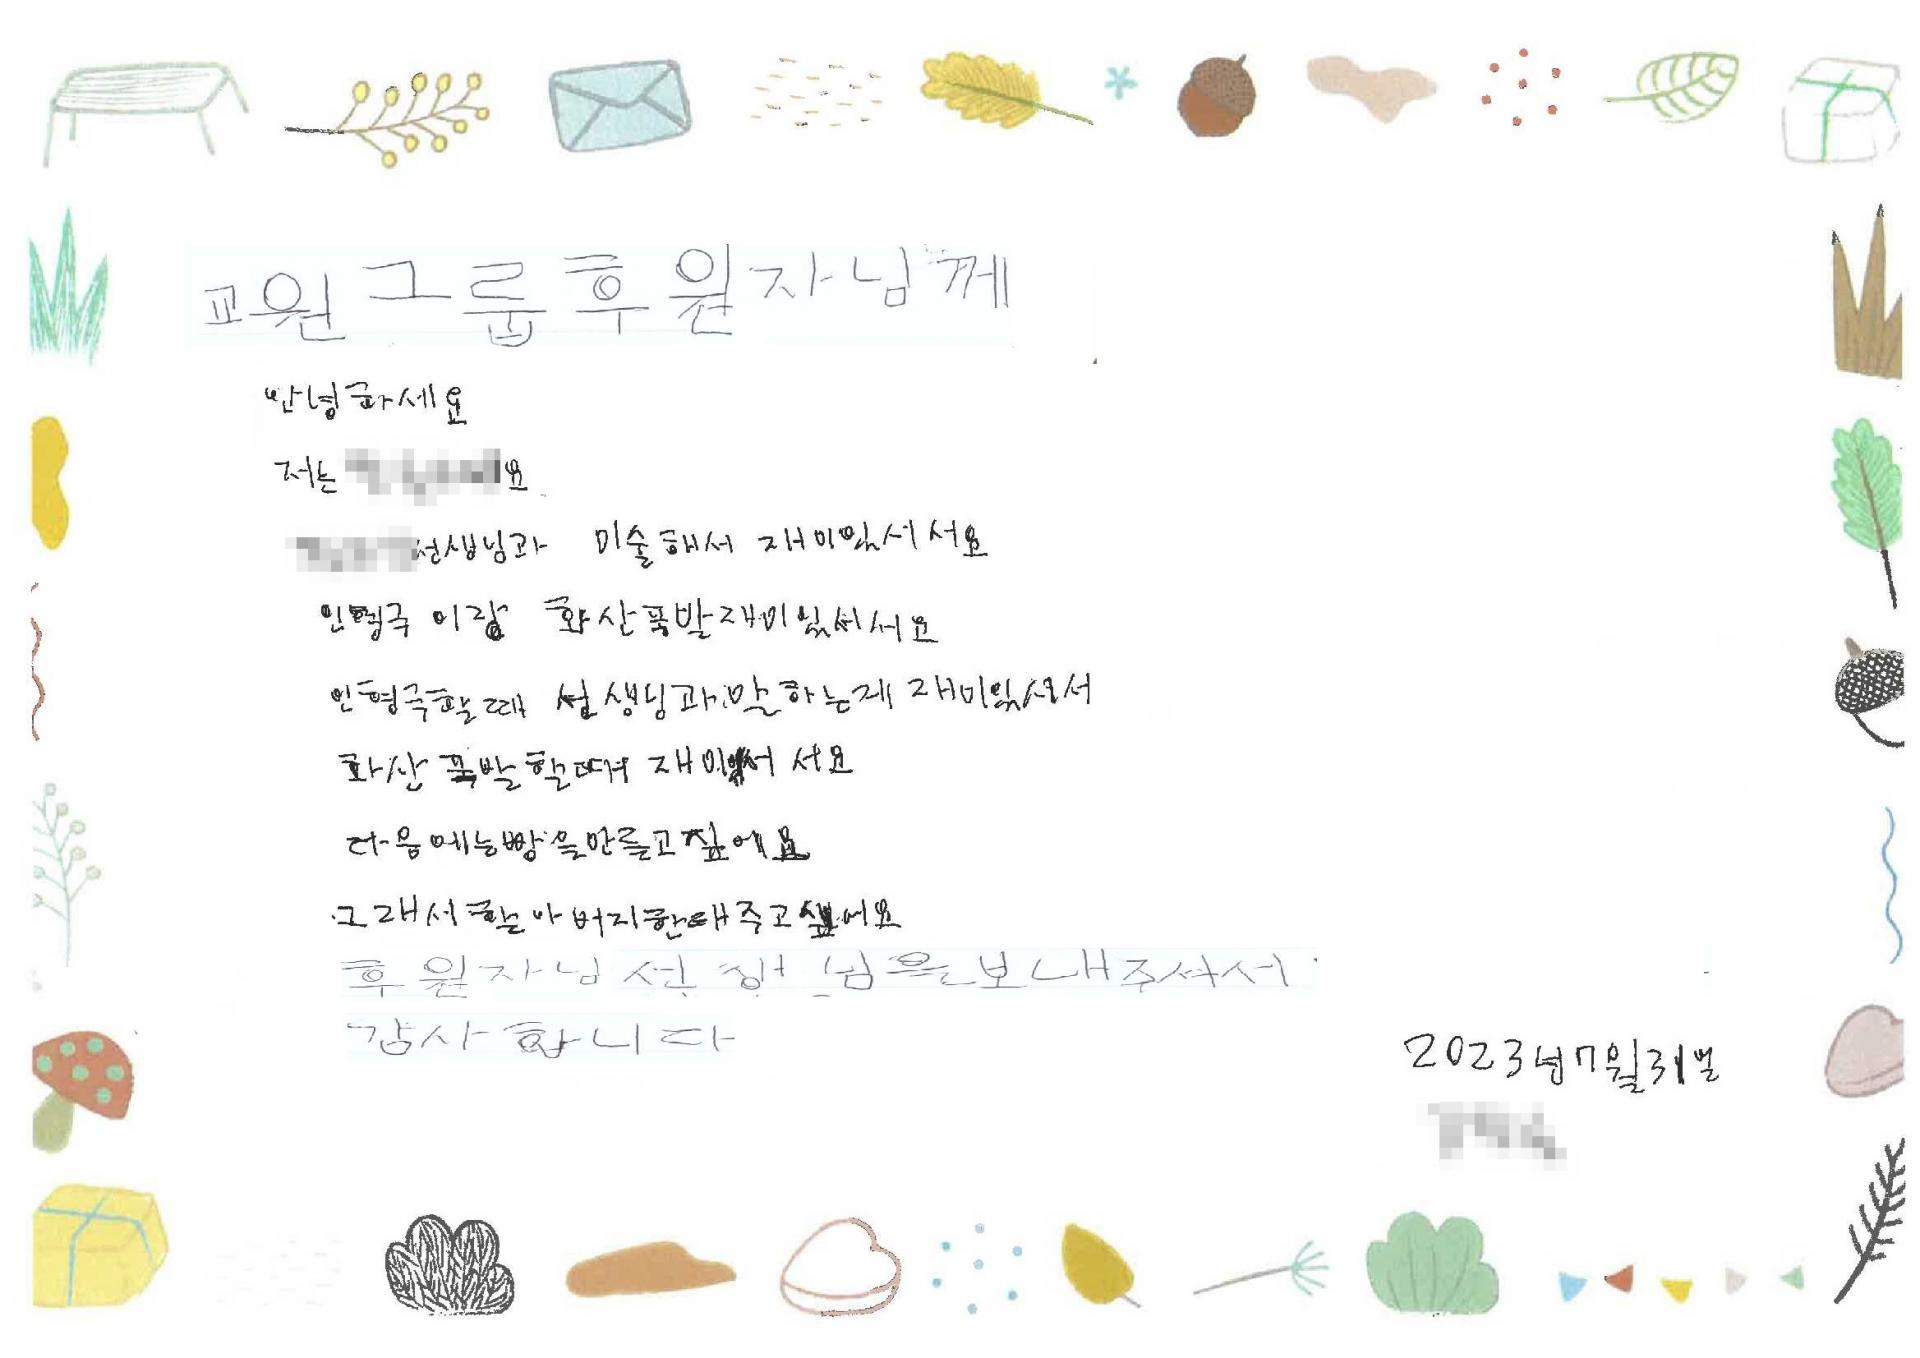 교원그룹후원자님께
안녕하세요
저는 요
선생님과 미술해서 재미있서서요
인형극 이랑 화산폭발재미있서서요
인형극할때 선생님과말하는게 재미있서서
화산 폭발할때 재미있서서요
다음에는빵을만들고싶에요
그래서할아버지한태주고싶에요
후원자님선생님을보내주셔서
감사합니다
2023년7월31일